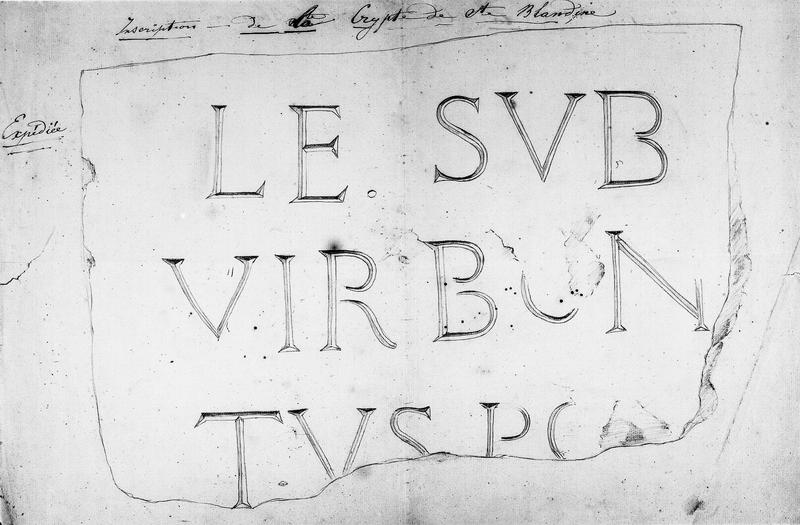 Inscription de la Crypte de Ste Blandine
Expédiée
LE. SVB
VIR BON
TVS PO